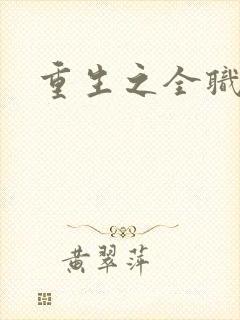 重生之全職
黄翠萍